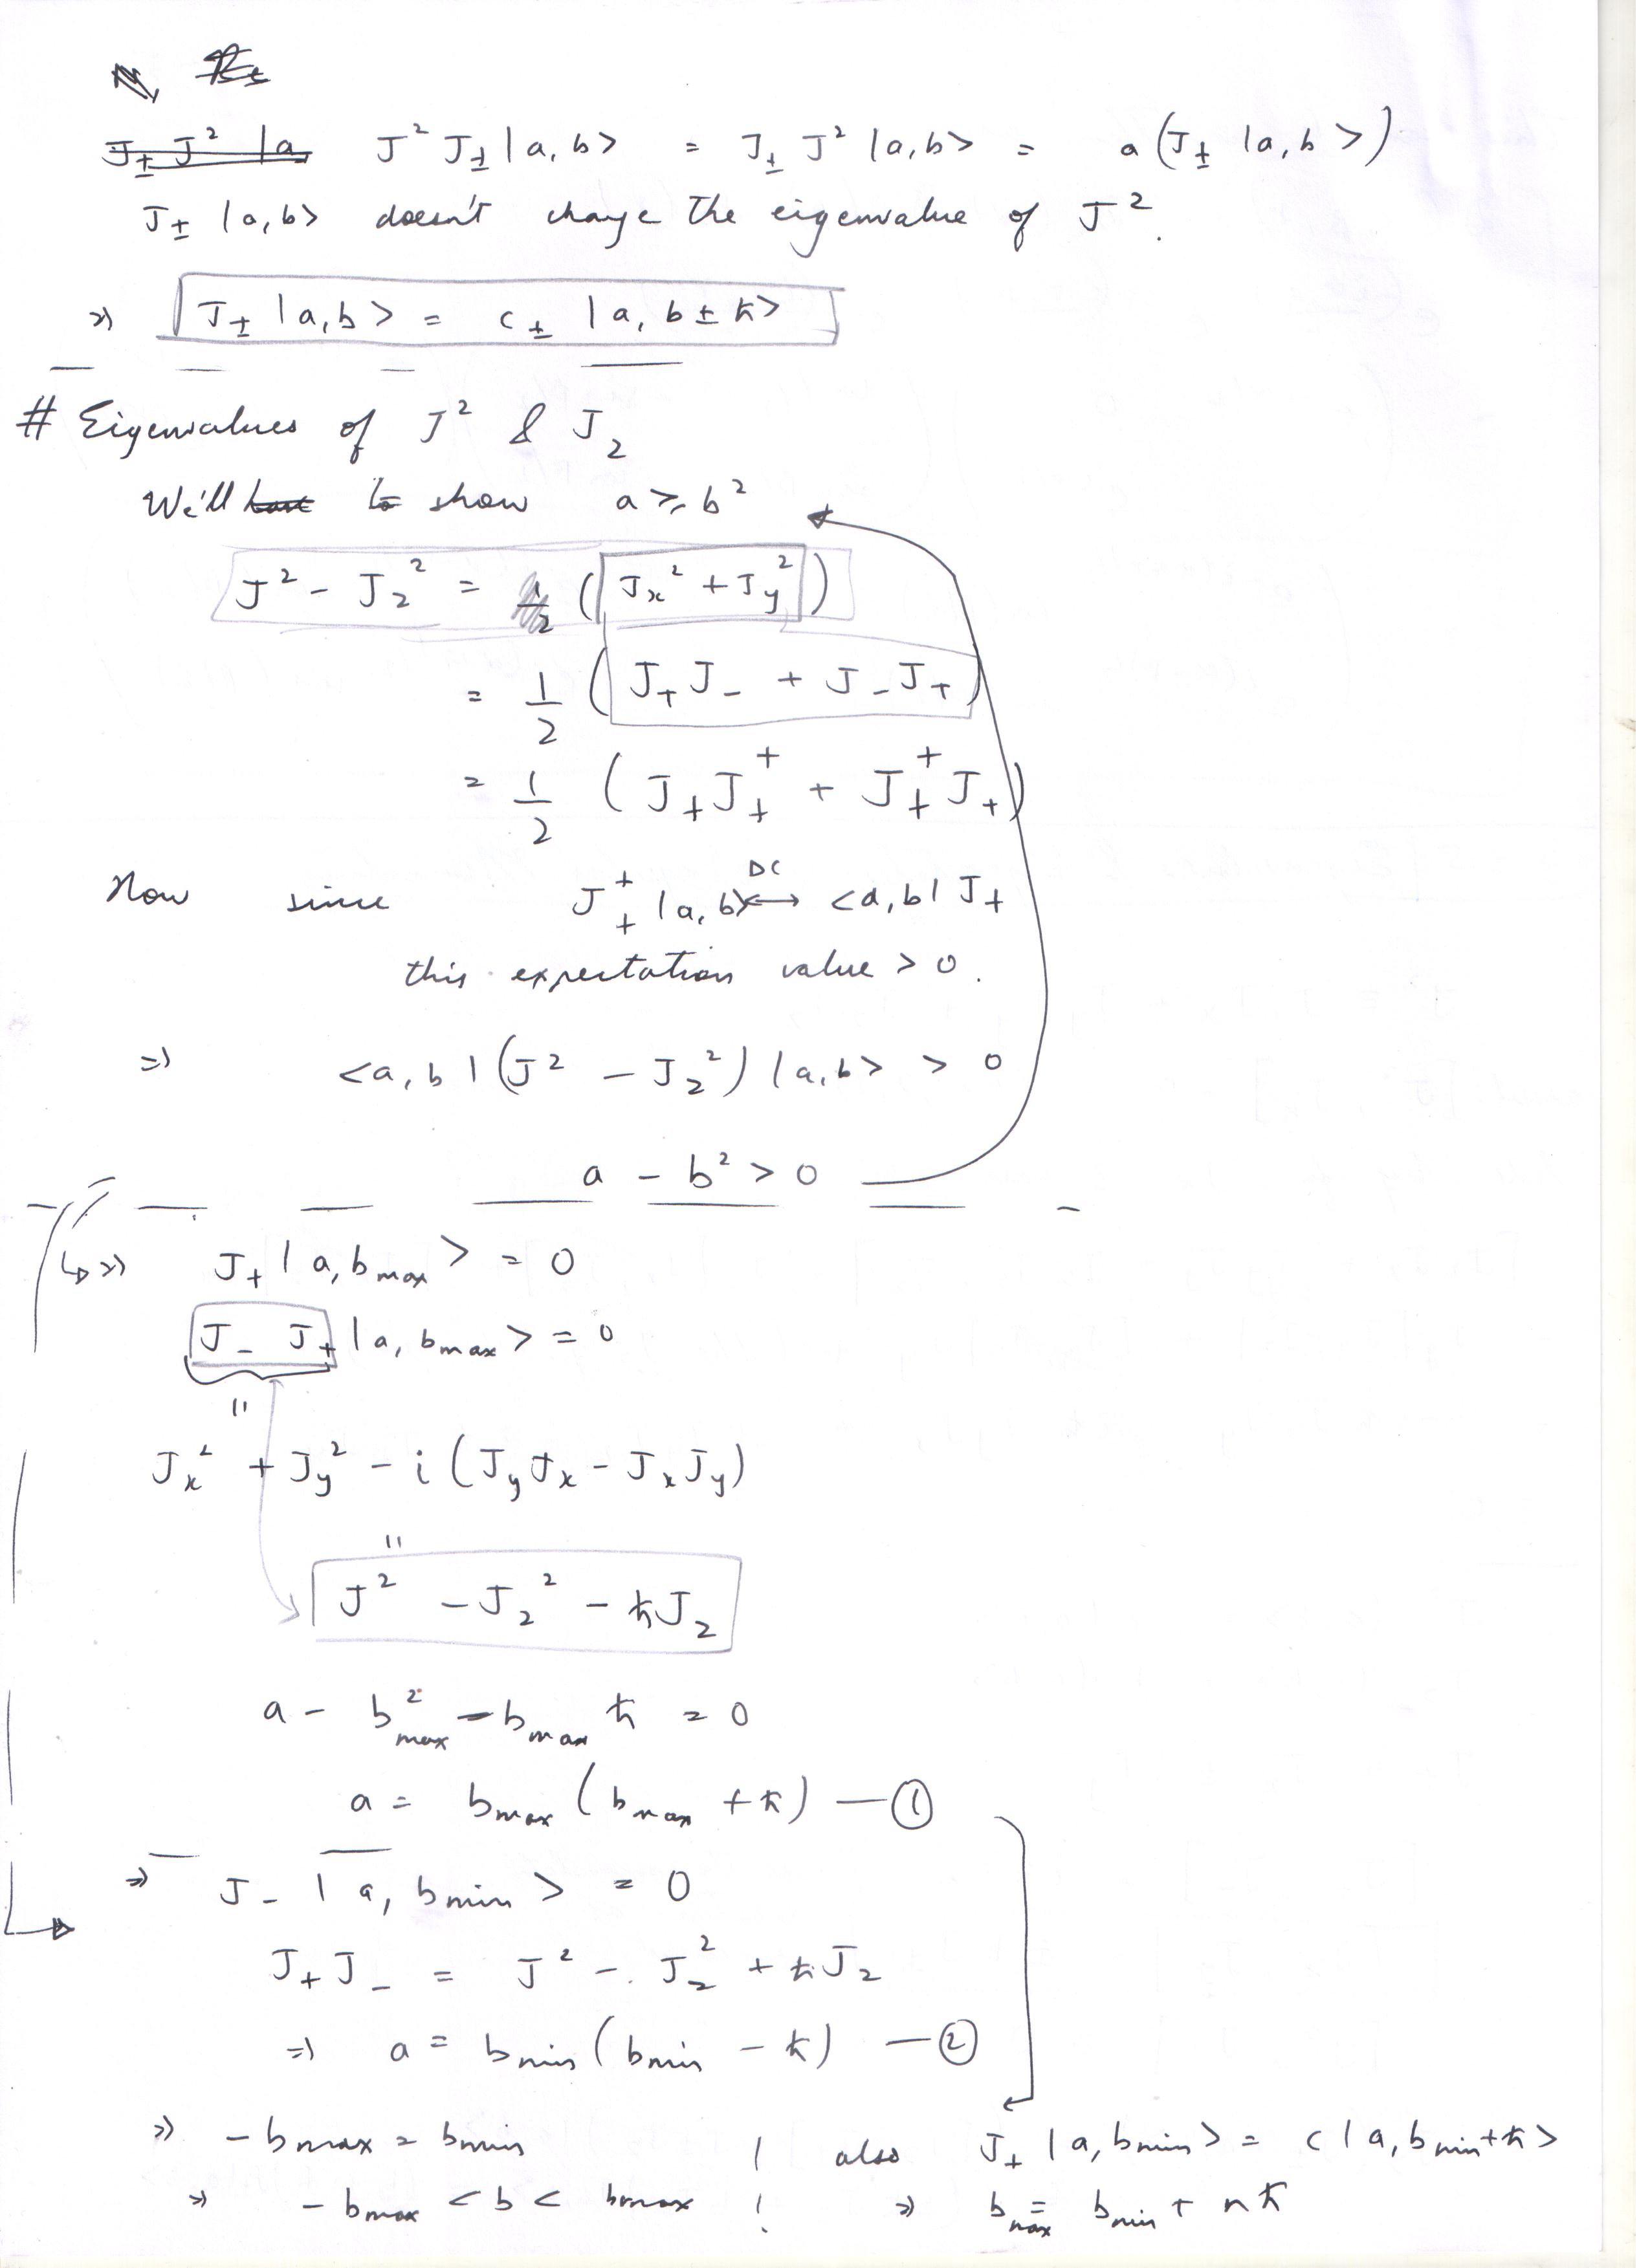 J² J± |a, b> = J± J² |a, b> = a (J± |a, b>)
J± |a, b> doesn't change the eigenvalue of J².
⇒ J± |a, b> = c± |a, b ± ℏ>
# Eigenvalues of J² & J_z
We'll to show a ≥ b²
J² - J_z² = (J_x² + J_y²)
= 1/2 (J₊J₋ + J₋J₊)
= 1/2 (J₊J₊⁺ + J₊⁺J₊)
Now since J₊⁺ |a, b> ⟷ <a, b| J₊
DC
this expectation value > 0.
⇒ <a, b| (J² - J_z²) |a, b> > 0
a - b² > 0
↳ ⇒ J₊ |a, b_max> = 0
J₋ J₊ |a, b_max> = 0
"
J_x² + J_y² - i (J_y J_x - J_x J_y)
"
J² - J_z² - ℏJ_z
a - b²_max - b_max ℏ = 0
a = b_max (b_max + ℏ) — ①
⇒ J₋ |a, b_min> = 0
J₊J₋ = J² - J_z² + ℏJ_z
⇒ a = b_min (b_min - ℏ) — ②
⇒ -b_max = b_min | also J₊ |a, b_min> = c |a, b_min + ℏ>
⇒ -b_max < b < b_max ⇒ b_max = b_min + nℏ